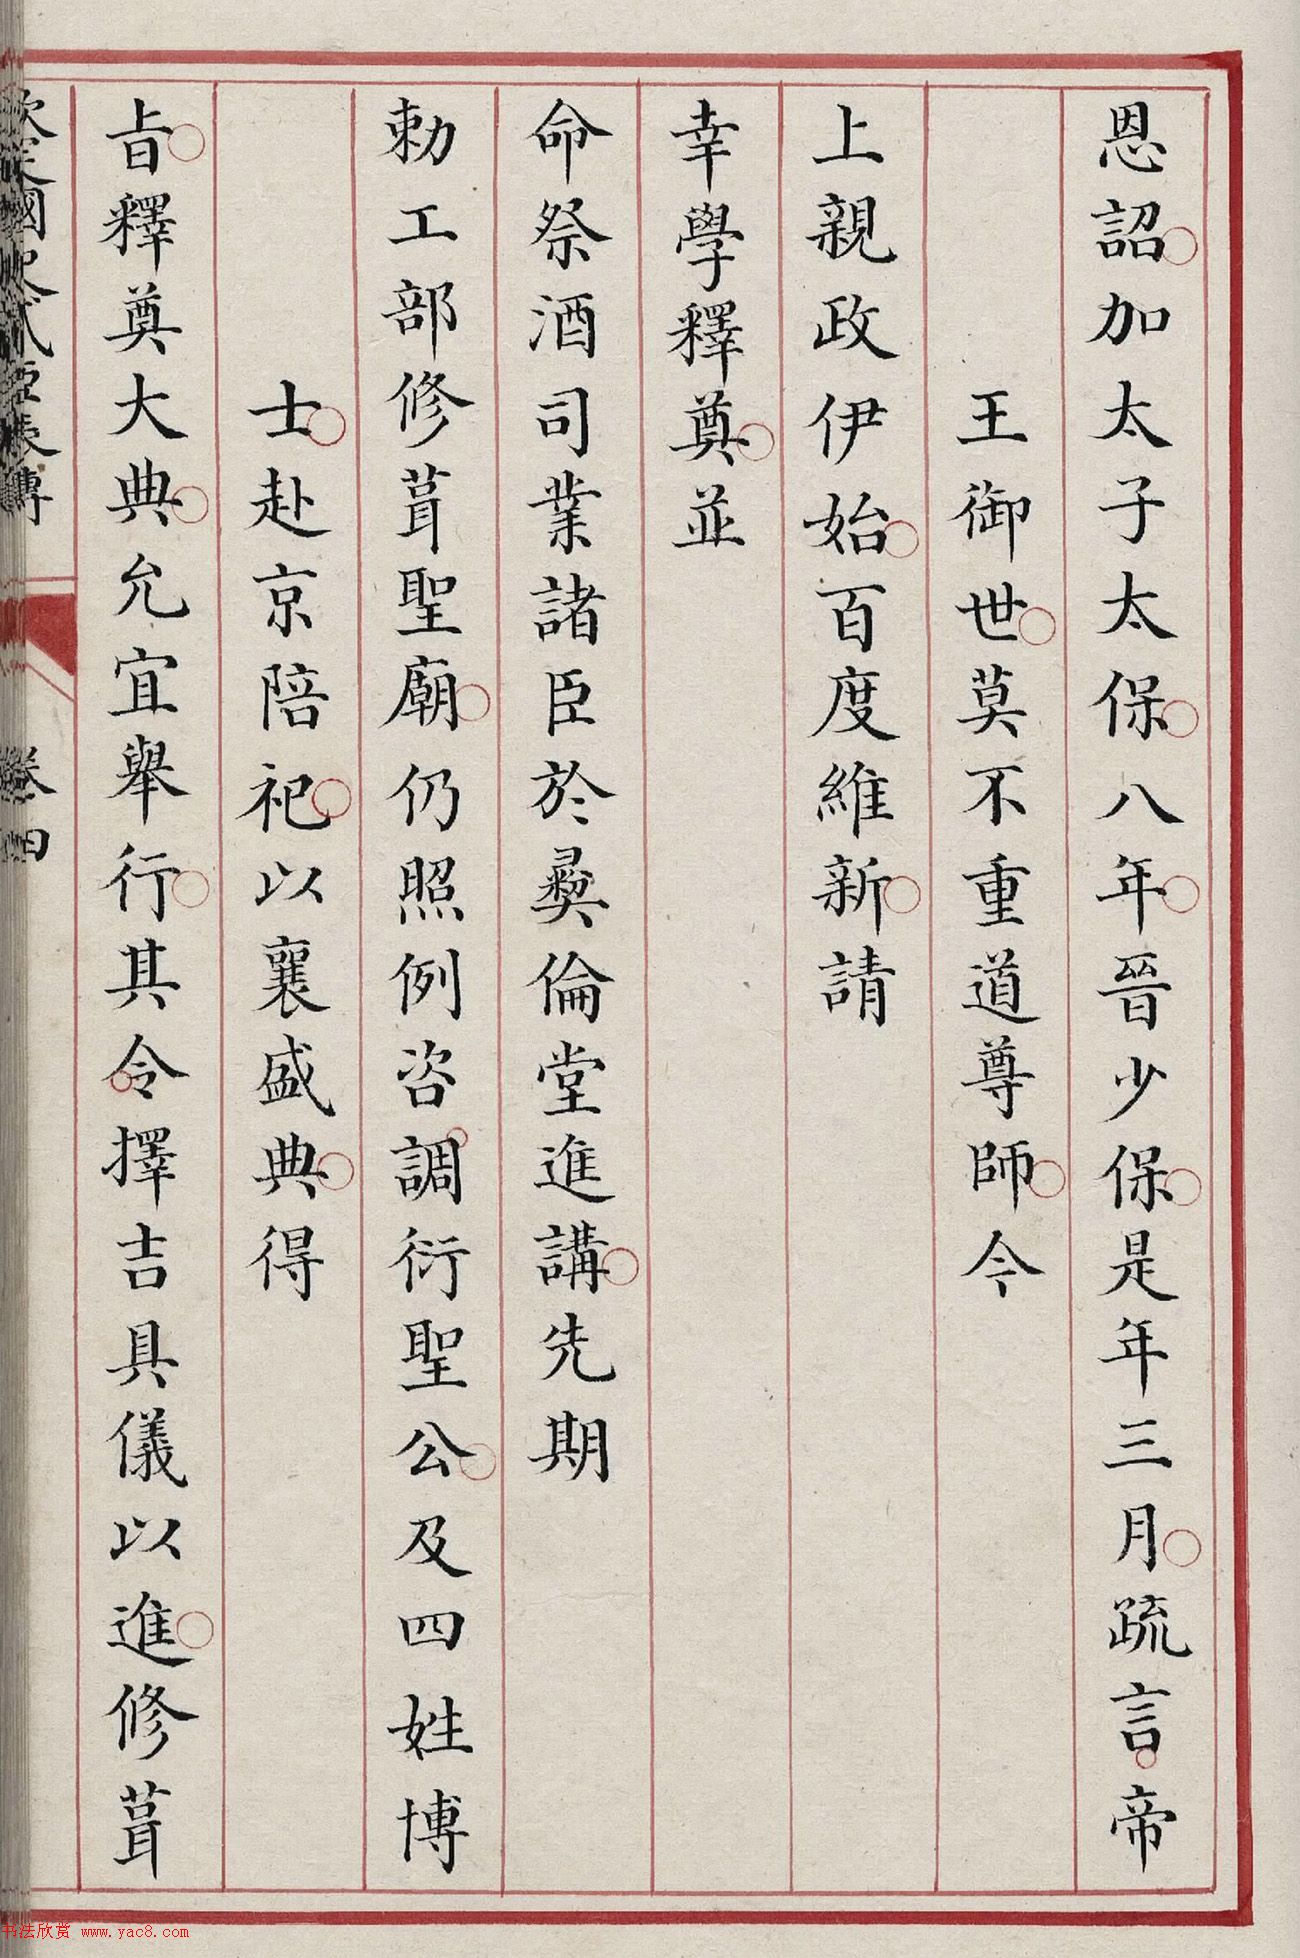 恩詔加太子太保八年晉少保是年三月疏言帝
王御世莫不重道尊師今
上親政伊始百度維新請
幸學釋奠並
命祭酒司業諸臣於彞倫堂進講先期
勅工部修葺聖廟仍照例咨調衍聖公及四姓博
士赴京陪祀以襄盛典得
旨釋奠大典允宜舉行其令擇吉具儀以進修葺
欽定國史貳臣表傳
卷四
书法欣赏 www.yac8.com